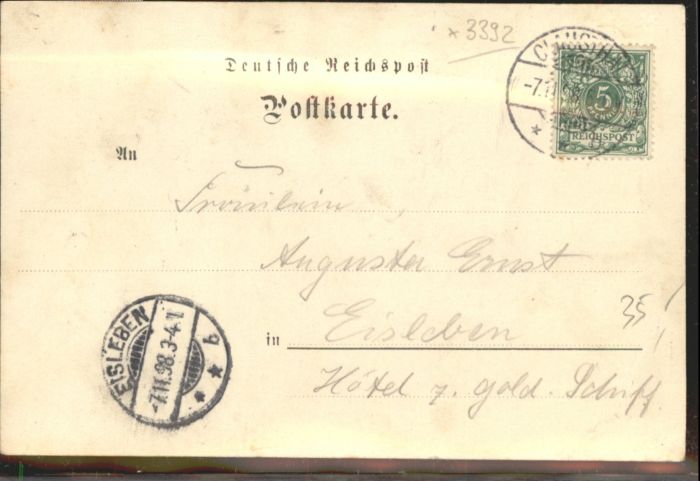 x 3392
Deutsche Reichspost
Postkarte.
An
5
REICHSPOST
-7.11.
Fräulein,
Auguste Ernst
in Eisleben
35
Hôtel z. gold. Schiff.
EISLEBEN
-7.11.98.3-4.N
* * b